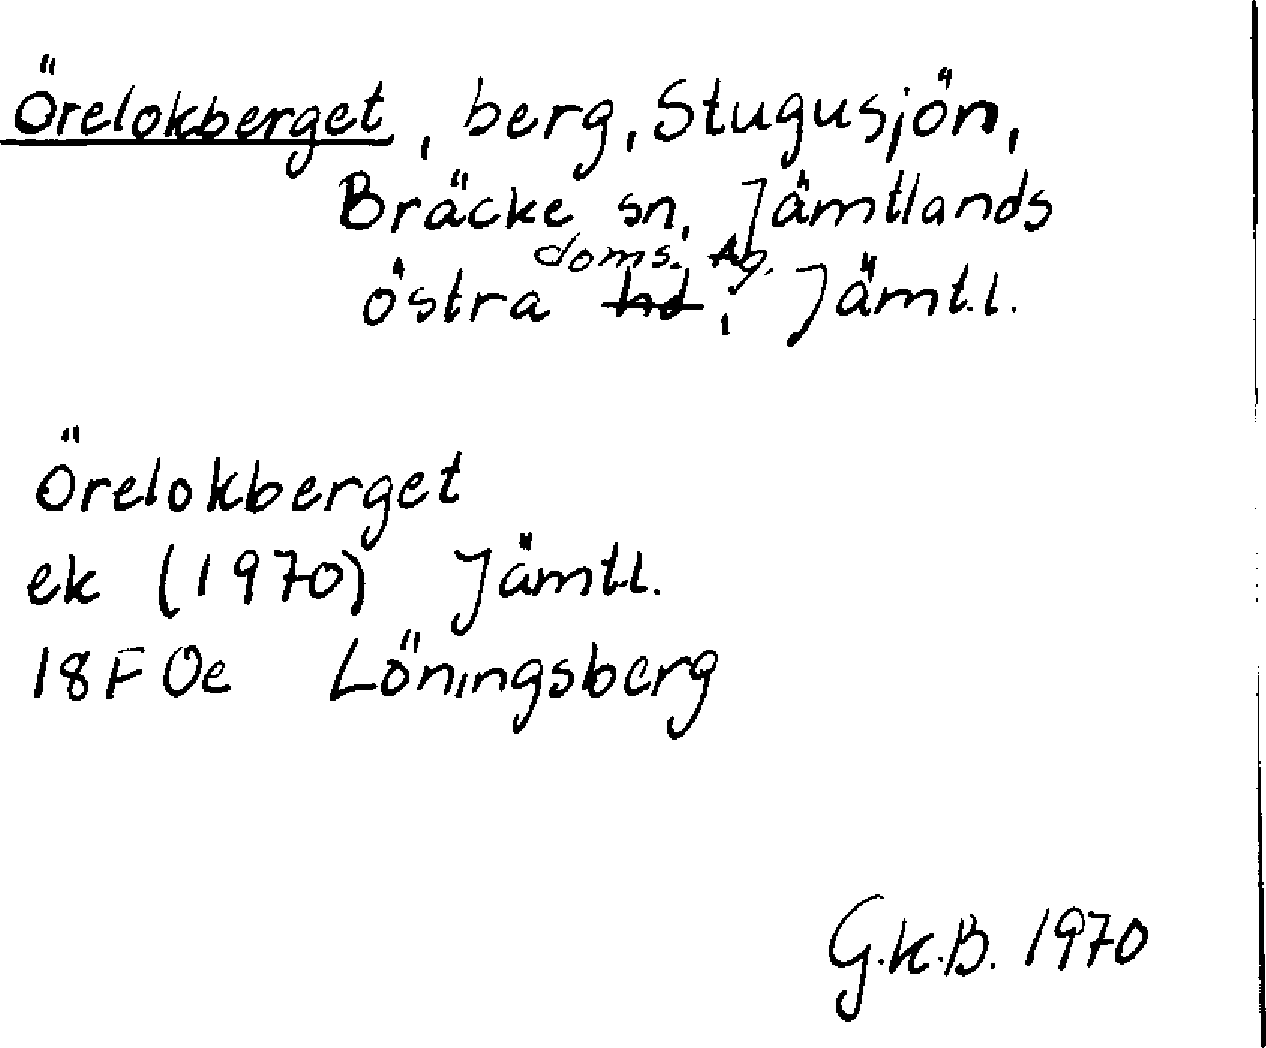 Örelokberget, berg, Stugusjön,
Bräcke sn, Jämtlands
östra doms. hd, Jämt.l.
Örelokberget
ek (1970) Jämt.l.
18F 0e Löningsberg
G.K.B. 1970